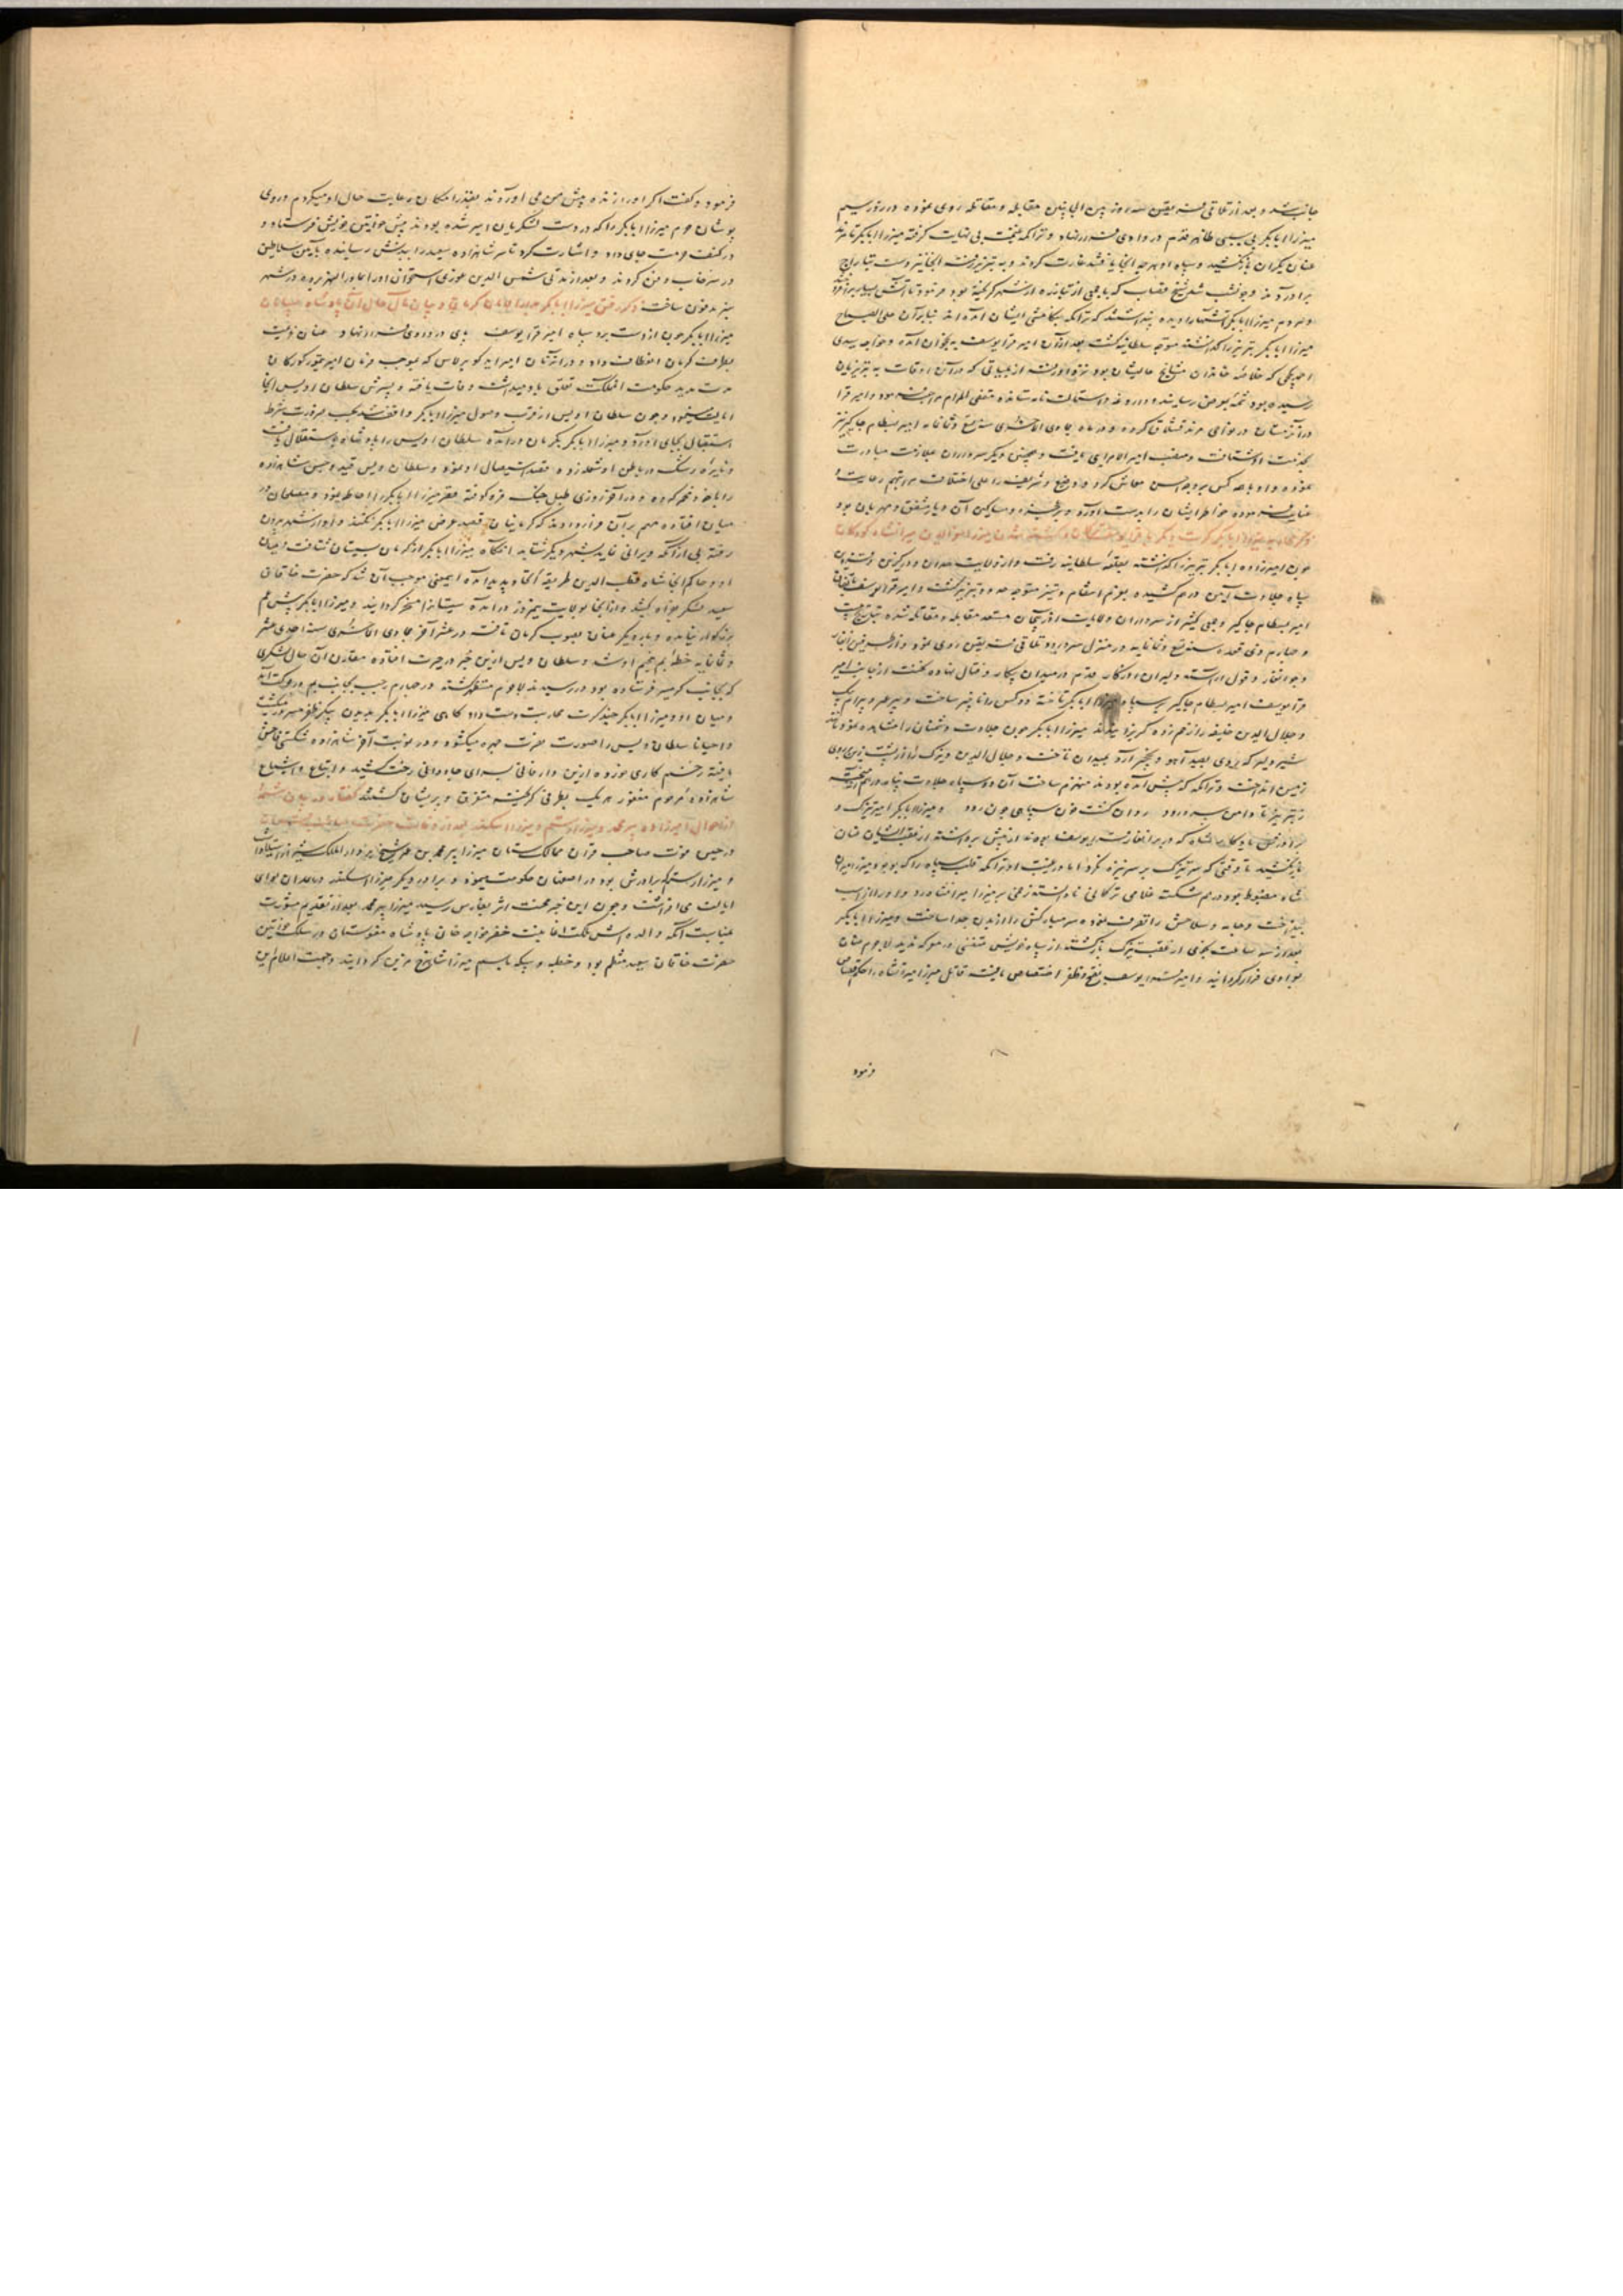 جانب شد و بعد از تلاقی فریقین سه روز بین الجانبین مقابله و مقاتله روی نموده در روز سیم
میرزا ابابکر بی سببی ظاهر قدم در وادی فرار نهاد و تراکمه غنیمت بی نهایت گرفته میرزا ابابکر تا مرند
عنان یکران باز نکشید و سپاه او هرچه آنجا یافتند غارت کردند و به تبریز رفته آنجا نیز دست بتاراج
برآوردند
مردم میرزا ابابکر آتشها را دیده پنداشتند که تراکمه بتکامشی ایشان آمده اند بنابر آن علی الصباح
میرزا ابابکر تبریز را گذاشته متوجه سلطانیه گشت بعد از آن امیر قرا یوسف به نخجوان آمده و خواجه سیدی
که خلاصه خاندان مشایخ عالیشان بود نزد او رفته از بلیاتی که در آن اوقات به تبریزیان
رسیده بود شمه بعرض رسانید و داروغه و استمالت نامه ستانده مقضی المرام مراجعت نمود و امیر قرا
در آن زمستان در نواحی مرند قشلاق کرده و در ماه جمادی الاخری سنه تسع و ثمانمایه امیر بسطام جاگیر نیز
بخدمت او شتافت و منصب امیر الامرایی یافت و همچنین دیگر سرداران بملازمت مبادرت
نموده و او با همه کس بر وجه احسن معاش کرد و وضیع و شریف را علی اختلاف مراتبهم رعایت و
عنایت فرموده خواطر ایشان را بدست آورد و بر رعیت و مساکین آن دیار مشفق و مهربان بود
چون امیرزاده ابابکر تبریز را گذاشته بقلعه سلطانیه رفت و از ولایت همدان و درگزین
سپاه جلادت آیین درهم کشیده بعزم انتقام و ستیز متوجه حدود تبریز گشت و امیر قرا یوسف باتفاق
امیر بسطام جاگیر و جمعی کثیر از سرداران ولایت آذربیجان مستعد مقابله و مقاتله شده
و چهارم ذی قعده سنه تسع و ثمانمایه در منزل سردرود تلاقی فریقین روی نمود و از طرفین
و جرانغار و قول آراسته دلیران اورنگار قدم در میدان پیکار و قتال نهاده نخست از جانب امیر
قرا یوسف امیر بسطام جاگیر بر سپاه میرزا ابابکر تاخته دو کس را ناچیز ساخت
و جلال الدین خلیفه را زخم زده میرزا ابابکر چون جلادت دشمنان را مشاهده نمود
شیر دلیر که روی بصید آهو و نخجیر آرد بمیدان تاخت و جلال الدین و بیرک را از پشت زین بروی
زمین انداخت و تراکمه که پیش آمده بودند منهزم ساخت آن دو سپاه جلادت پناه درهم آمیخته
ز تبریز تا دامن سردرود روان گشت خون سپاهی چون رود و میرزا ابابکر
باز نکشیدند
شاه مضبوط بود درهم شکست غلامی ترکمانی نادانسته زخمی بر میرزا میرانشاه زد و او را از اسب
بینداخت و جامه و سلاحش را تصرف نموده سر مبارکش را از بدن جدا ساخت و میرزا ابابکر
بعد از سه ساعت نجومی از عقب بازگشته از سپاه خویش متنفسی در معرکه ندید لاجرم عنان
بوادی فرار گردانید و امیر قرا یوسف بفتح و ظفر اختصاص یافت قاتل میرزا میرانشاه را حکم قصاص
فرمود
فرمود و گفت اگر او را زنده پیش من می آوردند بقدر امکان رعایت حال او میکردم و روی
پوشان حرم میرزا ابابکر را که در دست لشکریان اسیر شده بودند پیش خواتین خویش فرستاد و
در کنف حرمت جای داد و اشارت کرد تا سر شاهزاده سعید را ببدنش رسانیده بآیین سلاطین
در سرخاب دفن کردند و بعد از مدتی شمس الدین غوری استخوان او را بماوراء النهر برده در شهر
سبز مدفون ساخت ذکر رفتن میرزا ابابکر بجانب کرمان و بیان مآل حال آن پادشاه
میرزا ابابکر چون از دست برد سپاه امیر قرا یوسف پای در وادی فرار نهاد عنان عزیمت
بطرف کرمان انعطاف داد و در آن زمان امیر ایدکو برلاس که بموجب فرمان امیر تیمور کورکان
مدت مدید حکومت آن مملکت تعلق باو میداشت وفات یافته و پسرش سلطان اویس آنجا
ایالت مینمود و چون سلطان اویس از قرب وصول میرزا ابابکر واقف شد بحسب ضرورت شرط
استقبال بجای آورد و میرزا ابابکر بکرمان درآمده سلطان اویس را باستقلال یافت
و نایره رشک در باطن او شعله زده قصد استیصال او نمود و سلطان اویس قصد شاهزاده
میان افتاده مهم بر آن قرار دادند که کرمانیان قصد عرض میرزا ابابکر نکنند و او از شهر بیرون
رفته بی از آنکه ویرانی نماید بشهر دیگر شتابد آنگاه میرزا ابابکر از کرمان بسیستان شتافت و میان
او و حاکم آنجا شاه قطب الدین طریقه اتحاد پدید آمد این معنی موجب آن شد که حضرت خاقان
سعید لشکر بفراه کشید و از آنجا بولایت نیمروز درآمده سیستان را مسخر گردانید و میرزا ابابکر پیش عم
بزرگوار نیامده و بار دیگر عنان بصوب کرمان تافت در عشر آخر جمادی الاخری سنه احدی عشر
و ثمانمایه خطه بم مخیم او شد و سلطان اویس از این خبر در حیرت افتاده مقارن آن حال لشکری
که بجانب گرمسیر فرستاده بود در رسیدند لاجرم مستظهر گشته در چهارم رجب بجانب بم در حرکت آمد
و میان او و میرزا ابابکر چند کرت محاربت دست داد گاهی میرزا ابابکر پیکر ظفر میگشت
و احیانا سلطان اویس را صورت نصرت چهره میگشود و در نوبت آخر شاهزاده شکستی فاحش
یافته زخم کاری خورده از این دار فانی بسرای جاودانی رخت کشید و اتباع و اشیاع
شاهزاده مرحوم مغفور هر یک بطرفی گریخته متفرق و پریشان گشتند گفتار در بیان شمه
از احوال امیرزاده پیر محمد و میرزا رستم و میرزا اسکندر بعد از وفات حضرت
در حین فوت صاحب قران ممالک ستان میرزا پیر محمد بن عمر شیخ در دار الملک شیراز
و میرزا رستم برادرش بود در اصفهان حکومت مینمود و برادر دیگر میرزا اسکندر در همدان لوای
ایالت می افراشت و چون این خبر محنت اثر بفارس رسید میرزا پیر محمد بعد از تقدیم مشورت
بنا بر آنکه والده اش ملکت اغا بنت خضر خواجه خان پادشاه مغولستان در سلک خواتین
حضرت خاقان سعید منتظم بود و خطبه و سکه باسم میرزا شاهرخ مزین گردانید و جهت اعلام این